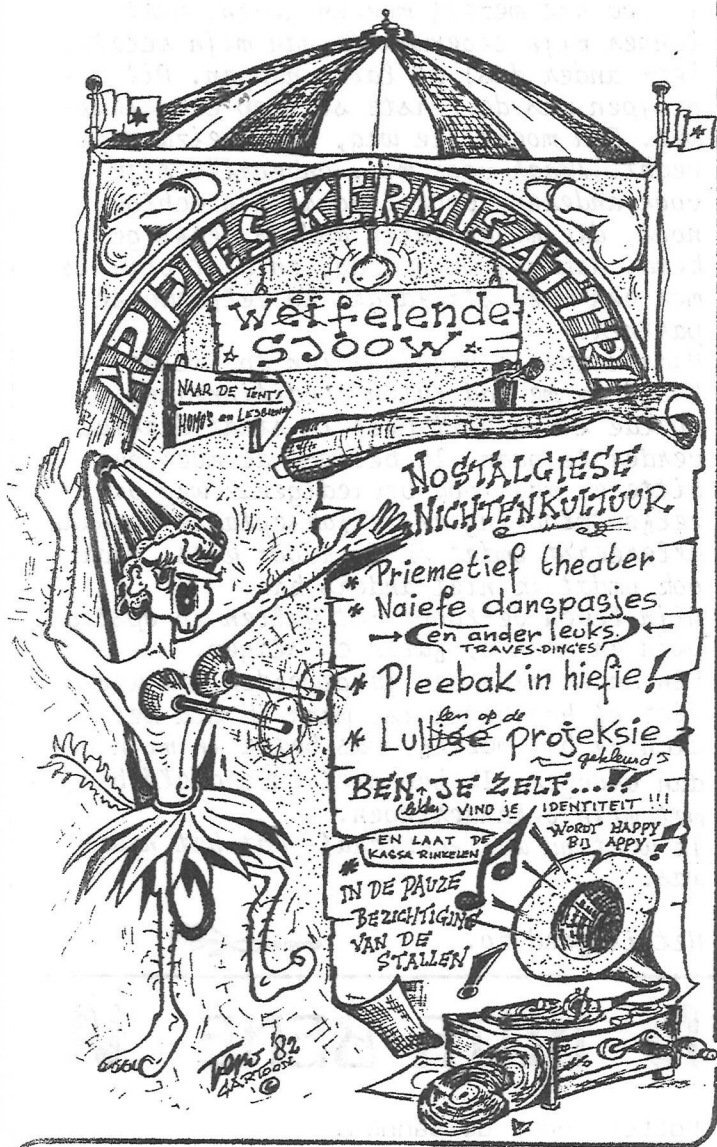 APPIES KERMISATTRI
er
Weifelende
SJOOW
NAAR DE TENT!
HOMO'S en LESBIENS
NOSTALGIESE
NICHTENKULTUUR
* Priemetief theater
* Naiefe danspasjes
en ander leuks.
TRAVES-DINGES
* Pleebak in hiefie!
len op de
* Lullige projeksie
gekleurd
BEN JE ZELF...!!
(elders) VIND JE IDENTITEIT!!!
EN LAAT DE
KASSA RINKELEN
WORDT HAPPY
BIJ APPY!
* IN DE PAUZE
BEZICHTIGING
VAN DE
STALLEN!
'82
CARTOOSE
©